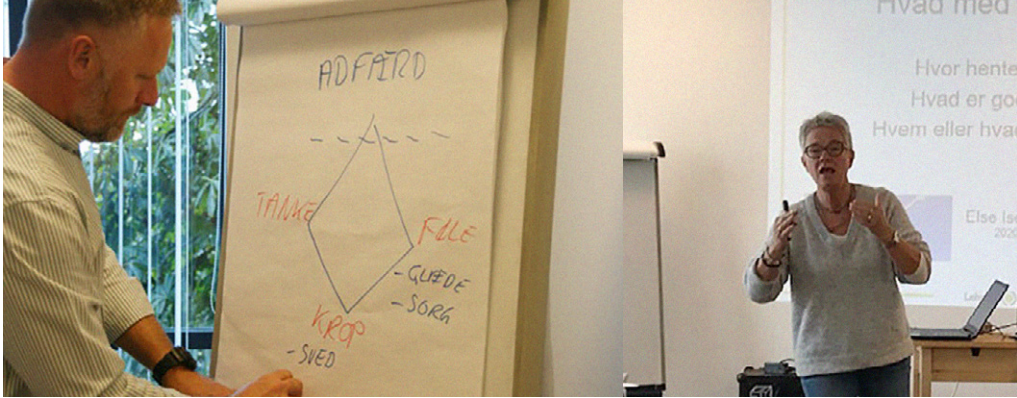 ADFÆRD
TANKE
FØLE
- GLÆDE
- SORG
KROP
- SVED
Hvad med
Hvor hente
Hvad er go
Hvem eller hva
Else Ise
2020